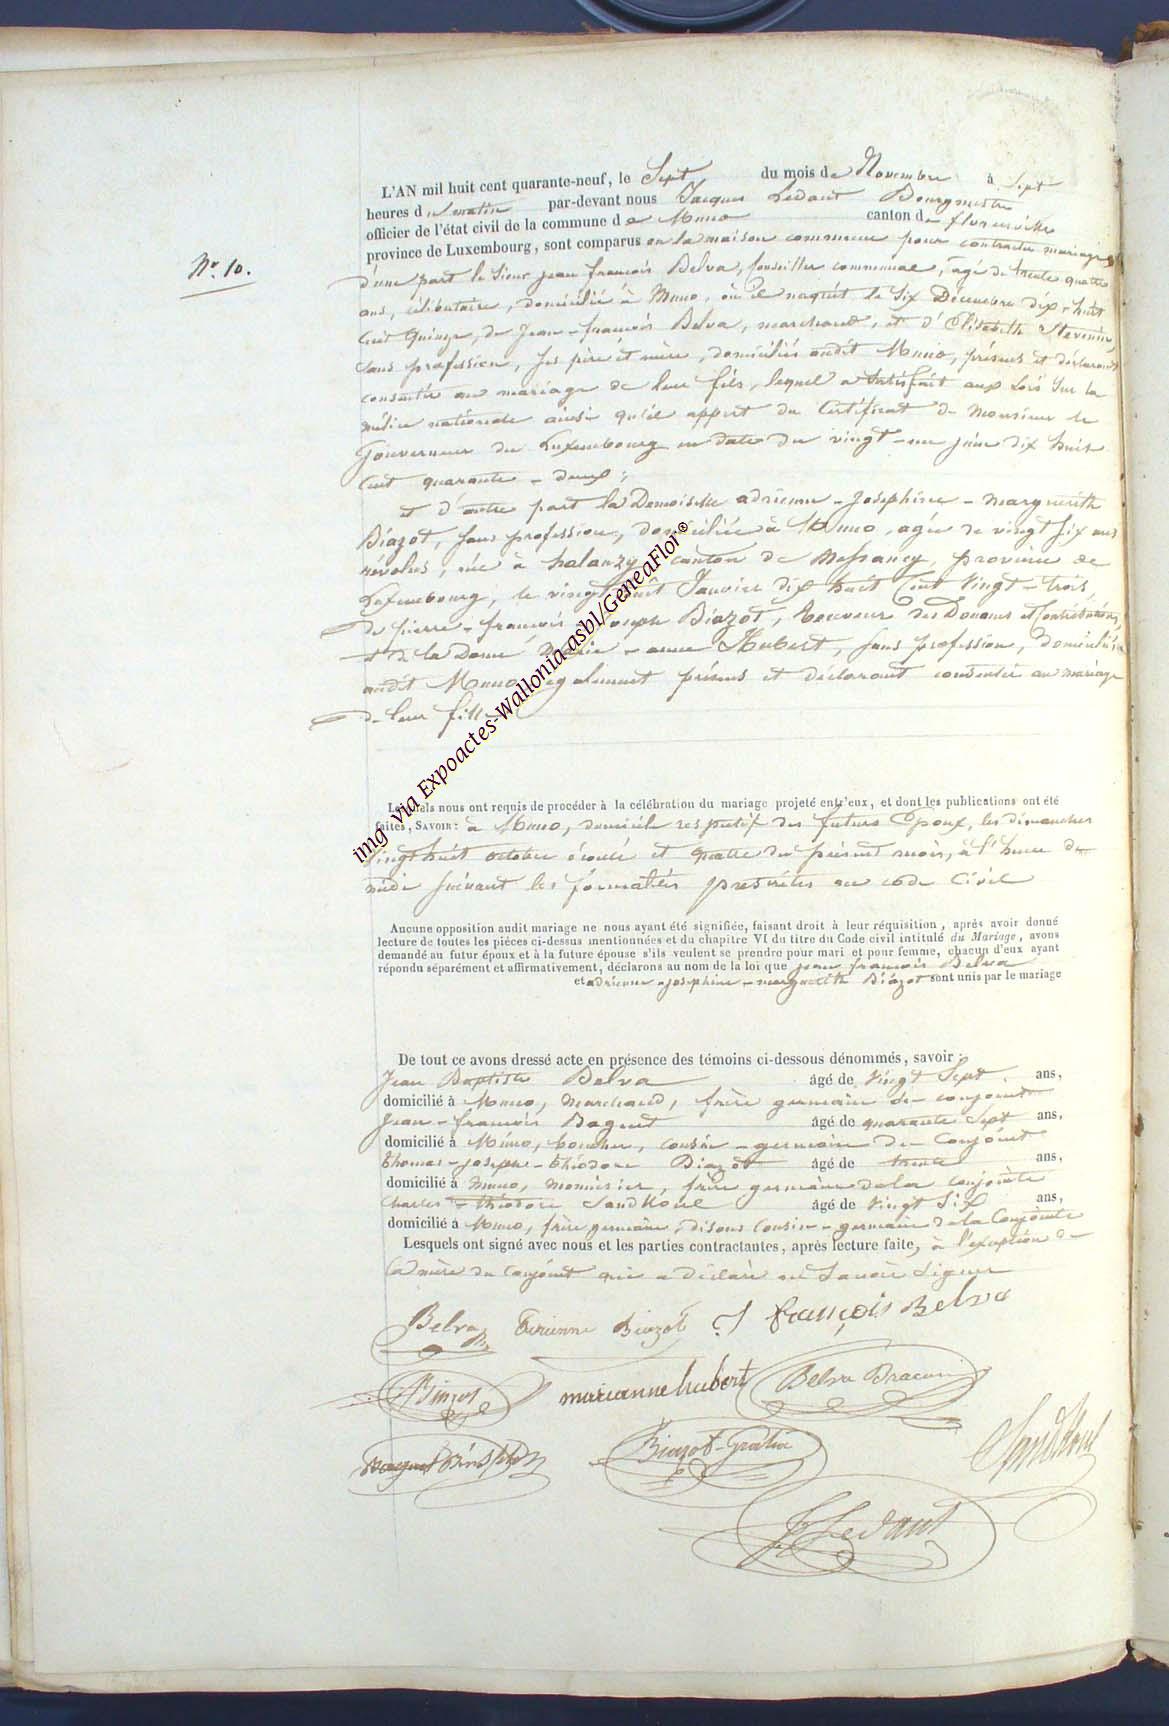 N.º 10.
L'AN mil huit cent quarante-neuf, le Sept du mois de Novembre à Sept
heures du matin par-devant nous Jacques Ledant Bourgmestre
officier de l'état civil de la commune de Muno canton de florenville
province de Luxembourg, sont comparus en la maison commune pour contracter mariage
d'une part le Sieur jean françois Belva, Conseiller communal, agé de trente quatre
ans, célibataire, domicilié à Muno, où il naquit le Six Décembre dix-huit
Cent Quinze, de Jean-françois Belva, marchand, et d'Elisabeth Stevenin,
Sans profession, Ses père et mère, domiciliés audit Muno, présens et déclarant
consentir au mariage de leur fils, lequel a Satisfait aux Lois Sur la
milice nationale ainsi qu'il appert du Certificat de Monsieur le
Gouverneur du Luxembourg en date du vingt-un juin dix huit
Cent quarante-deux;
et d'autre part la Demoiselle adrienne-Josephine-Marguerith
Biazot, Sans profession, domiciliée à Muno, agée de vingt Six ans
révolus, née à halanzy canton de Messancy, province de
Luxembourg, le vingt huit Janvier dix huit Cent Vingt-trois
de pierre-françois Joseph Biazot, Receveur des Douanes et Contributions,
et de la Dame Marie-anne Hubert, Sans profession, domiciliés
audit Muno, egalement présens et déclarant consentir au mariage
de leur fille
Lesquels nous ont requis de procéder à la célébration du mariage projeté entr'eux, et dont les publications ont été
faites, SAVOIR: à Muno, domicile respectif des futurs Epoux, les dimanches
Vingt huit octobre écoulé et quatre du présent mois, à l'heure de
midi Suivant les formalités prescrites au code Civil
Aucune opposition audit mariage ne nous ayant été signifiée, faisant droit à leur réquisition, après avoir donné
lecture de toutes les pièces ci-dessus mentionnées et du chapitre VI du titre du Code civil intitulé du Mariage, avons
demandé au futur époux et à la future épouse s'ils veulent se prendre pour mari et pour femme, chacun d'eux ayant
répondu séparément et affirmativement, déclarons au nom de la loi que jean françois Belva
et adrienne-josephine-marguerith Biazot sont unis par le mariage
De tout ce avons dressé acte en présence des témoins ci-dessous dénommés, savoir:
Jean Baptiste Belva âgé de Vingt Sept ans,
domicilié à Muno, Marchand, frère germain du conjoint
Jean-françois Baguet âgé de quarante Sept ans,
domicilié à Muno, boucher, cousin-germain du Conjoint
thomas-joseph-théodore Biazot âgé de trente ans,
domicilié à Muno, Menuisier, frère germain de la conjointe
Charles-théodore Sandkoul âgé de Vingt Six ans,
domicilié à Muno, frère germain, disons Cousin-germain de la Conjointe
Lesquels ont signé avec nous et les parties contractantes, après lecture faite, à l'exception de
la mère du Conjoint qui a déclaré ne Savoir Signer
Belva Adrienne Biazot J françois Belva
Biazot marianne hubert Belva
Baguet Biazot Sandkoul
J Ledant
img via Expoactes-Wallonia asbl/GeneaFlor©